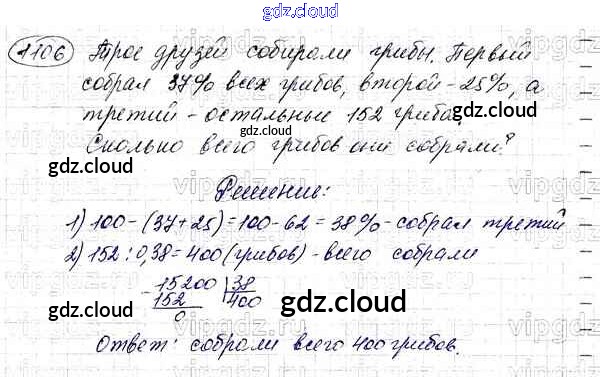 gdz.cloud
1106 Трое друзей собирали грибы. Первый
собрал 37% всех грибов, второй - 25%, а
третий - остальные 152 гриба.
gdz.cloud
gdz.cloud
Сколько всего грибов они собрали?
gdz.cloud
gdz.cloud
Решение:
1) 100 - (37 + 25) = 100 - 62 = 38% - собрал третий
2) 152 : 0,38 = 400 (грибов) - всего собрали
15200 | 38
152 400
0
gdz.cloud
gdz.cloud
gdz.cloud
Ответ: собрали всего 400 грибов.